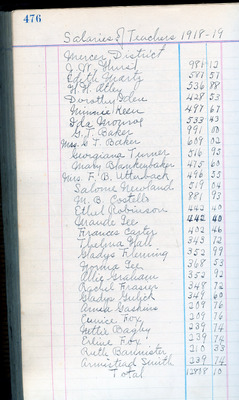 476
Salaries of Teachers 1918-19
Mercer District
C. W. Hurst 981 12
Edith Martz 581 57
W. H. Utley 536 88
Dorothy 428 53
Minnie Keen 487 67
Iola Monroe 533 43
G. T. Baker 991 80
Mrs. G. T. Baker 609 02
Georgiana Turner 516 95
Mary Blankenbaker 475 60
Mrs. F. B. Utterback 496 55
Salome Newland 519 04
M. B. Costello 881 93
Ethel Robinson 442 40
Maude Lee 442 40
Frances Carter 402 46
Thelma Hall 345 12
Gladys Fleming 352 99
Norma Lee 368 53
Allie Graham 352 92
Rachel Frasier 348 72
Gladys Gulick 349 60
Annie Gaskins 209 76
Eunice Fox 209 76
Nettie Bagley 239 74
Erline Fox 239 74
Ruth Barrister 210 33
Armistead Smith 239 74
Total 12818 10